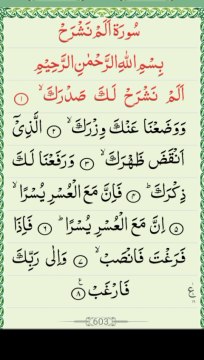 سُورَةُ اَلَمْ نَشْرَحْ
بِسْمِ اللّٰهِ الرَّحْمٰنِ الرَّحِيْمِ
اَلَمْ نَشْرَحْ لَكَ صَدْرَكَ ۙ ۱
وَوَضَعْنَا عَنْكَ وِزْرَكَ ۙ ۲ الَّذِيْٓ
اَنْقَضَ ظَهْرَكَ ۙ ۳ وَرَفَعْنَا لَكَ
ذِكْرَكَ ؕ ۴ فَاِنَّ مَعَ الْعُسْرِ يُسْرًا ۙ
۵ اِنَّ مَعَ الْعُسْرِ يُسْرًا ؕ ۶ فَاِذَا
فَرَغْتَ فَانْصَبْ ۙ ۷ وَاِلٰى رَبِّكَ
فَارْغَبْ ۸ ع
603